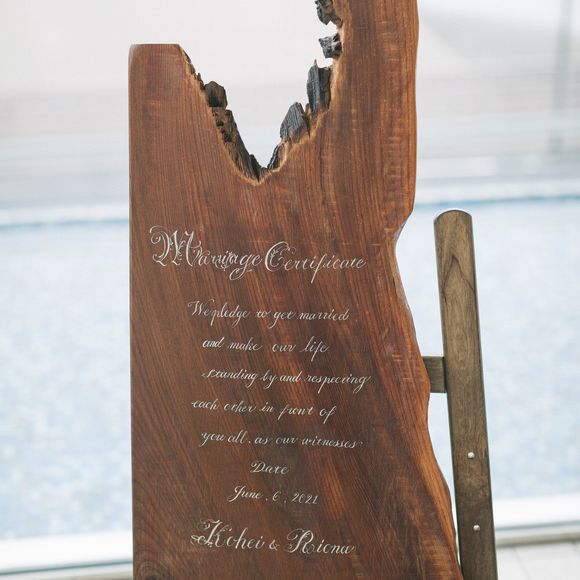 Marriage Certificate
We pledge to get married
and make our life
standing by and respecting
each other in front of
you all, as our witnesses
Date
June. 6, 2021
Kohei & Riona